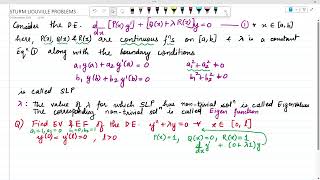 STURM LIOUVILLE PROBLEMS
Consider the D.E. d/dx [P(x) y'] + [Q(x) + λ R(x)] y = 0 — ① ∀ x ∈ [a, b]
here, P(x), Q(x) & R(x) are continuous fⁿs on [a, b] & λ is a constant
Eqⁿ ① along with the boundary conditions
a₁ y(a) + a₂ y'(a) = 0 a₁² + a₂² ≠ 0
b₁ y(b) + b₂ y'(b) = 0 b₁² + b₂² ≠ 0
is called SLP
λ : The value of λ for which SLP has non-trivial solⁿ is called Eigenvalues
The corresponding non-trivial solⁿ is called Eigen function
Q) Find EV & EF of the DE. y'' + λy = 0 ∀ x ∈ [0, l]
y(0) = y'(l) = 0, l > 0 P(x) = 1, Q(x) = 0, R(x) = 1
d/dx y' + (0 + λ1) y